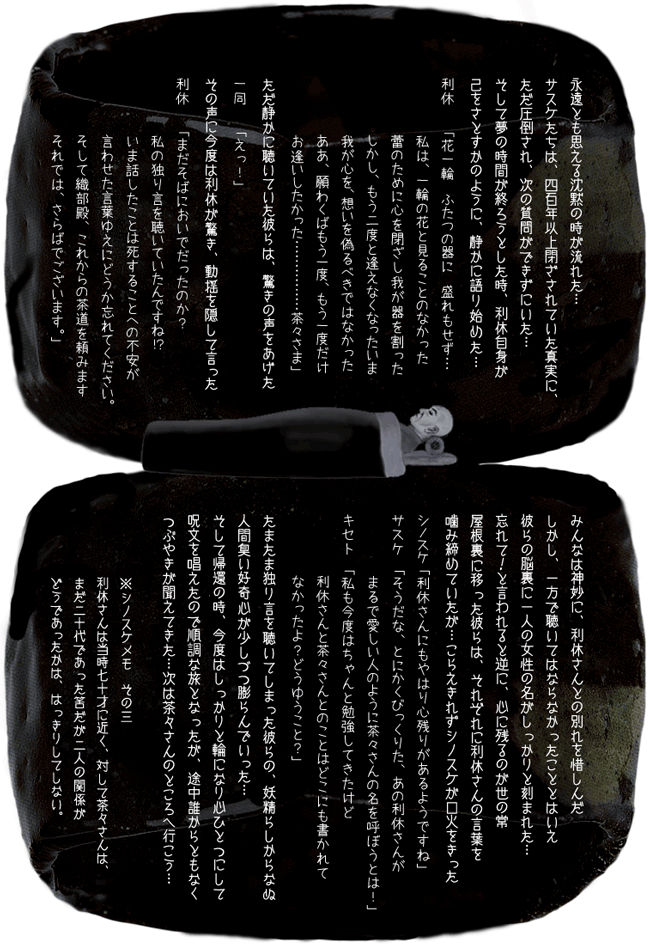 永遠とも思える沈黙の時が流れた…
サスケたちは、四百年以上閉ざされていた真実に、
ただ圧倒され、次の質問ができずにいた…
そして夢の時間が終ろうとした時、利休自身が
己をさとすかのように、静かに語り始めた…
利休 「花一輪 ふたつの器に 盛れもせず…
私は、一輪の花と見ることのなかった
蕾のために心を閉ざし我が器を割った
しかし、もう二度と逢えなくなったいま
我が心を、想いを偽るべきではなかった
ああ、願わくばもう一度、もう一度だけ
お逢いしたかった……………茶々さま」
ただ静かに聴いていた彼らは、驚きの声をあげた
一同 「えっ!」
その声に今度は利休が驚き、動揺を隠して言った
利休 「まだそばにおいでだったのか?
私の独り言を聴いていたんですね!?
いま話したことは死することへの不安が
言わせた言葉ゆえにどうか忘れてください。
そして織部殿、これからの茶道を頼みます
それでは、さらばでございます。」
みんなは神妙に、利休さんとの別れを惜しんだ
しかし、一方で聴いてはならなかったこととはいえ
彼らの脳裏に一人の女性の名がしっかりと刻まれた…
忘れて!と言われると逆に、心に残るのが世の常
屋根裏に移った彼らは、それぞれに利休さんの言葉を
噛み締めていたが…こらえきれずシノスケが口火をきった
シノスケ「利休さんにもやはり心残りがあるようですね」
サスケ 「そうだな、とにかくびっくりた、あの利休さんが
まるで愛しい人のように茶々さんの名を呼ぼうとは!」
キセト 「私も今度はちゃんと勉強してきたけど
利休さんと茶々さんとのことはどこにも書かれて
なかったよ?どうゆうこと?」
たまたま独り言を聴いてしまった彼らの、妖精らしからなぬ
人間臭い好奇心が少しづつ膨らんでいった…
そして帰還の時、今度はしっかりと輪になり心ひとつにして
呪文を唱えたので順調な旅となったが、途中誰からともなく
つぶやきが聞えてきた…次は茶々さんのところへ行こう…
※シノスケメモ その三
利休さんは当時七十才に近く、対して茶々さんは、
まだ二十代であった筈だが二人の関係が
どうであったかは、はっきりしてしない。